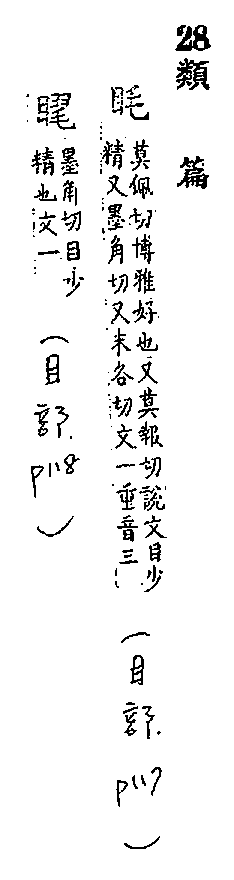 28類篇
眊
莫佩切博雅好也又莫報切說文目少
精又墨角切又末各切文一重音三
(目部. P117)
墨角切目少
精也文一
(目部. P118)